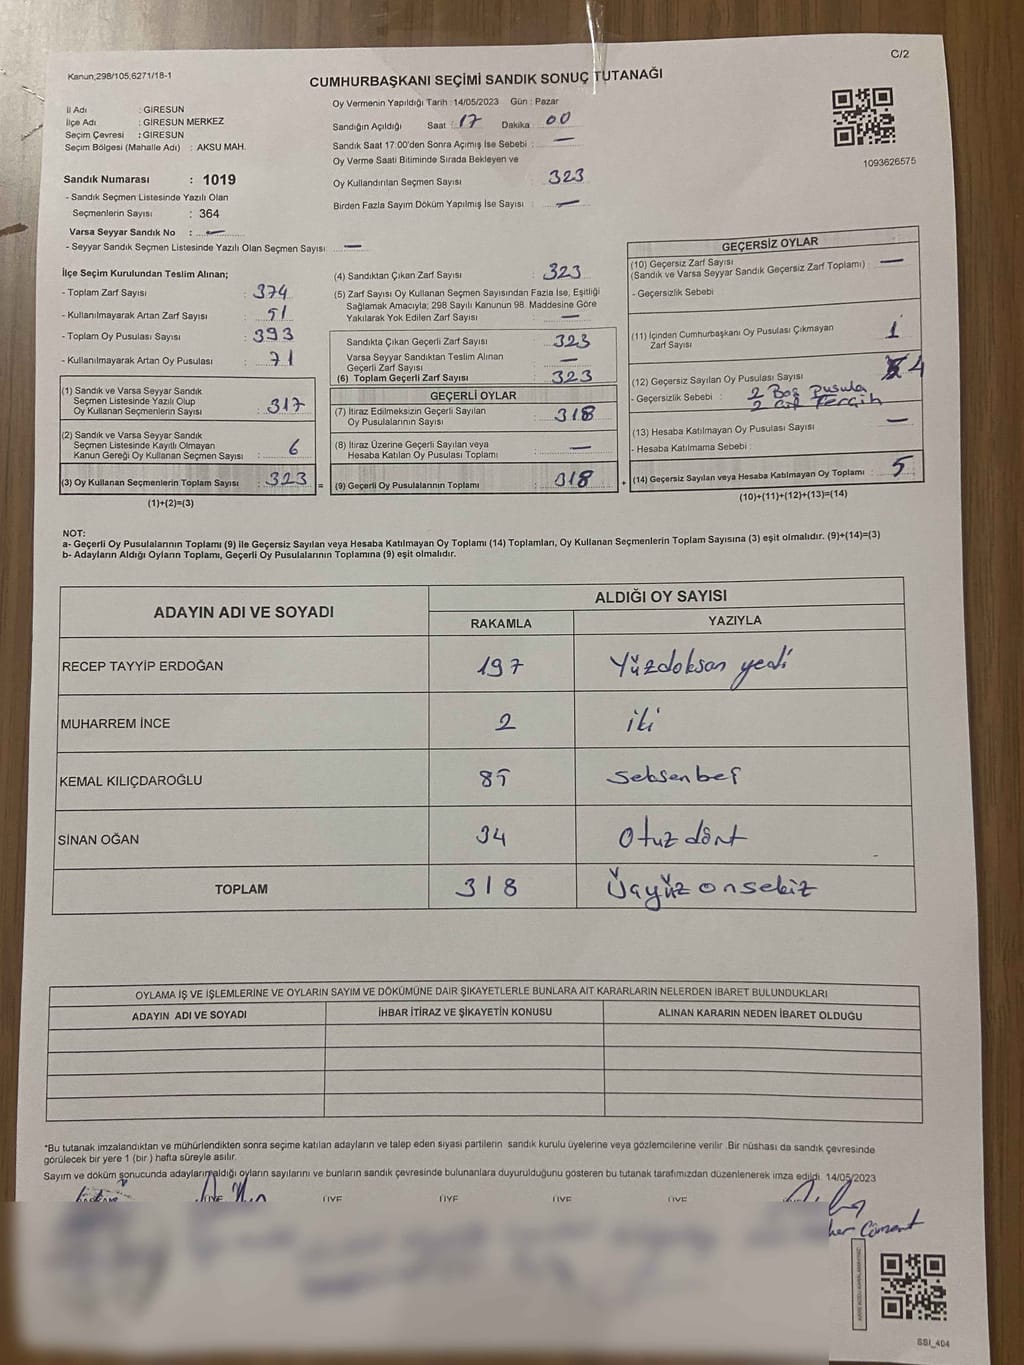 C/2
Kanun,298/105,6271/18-1
CUMHURBAŞKANI SEÇİMİ SANDIK SONUÇ TUTANAĞI
İl Adı : GİRESUN
İlçe Adı : GİRESUN MERKEZ
Seçim Çevresi : GİRESUN
Seçim Bölgesi (Mahalle Adı) : AKSU MAH.
Oy Vermenin Yapıldığı Tarih :14/05/2023 Gün : Pazar
Sandığın Açıldığı Saat : 17 Dakika 00
Sandık Saat 17.00'den Sonra Açımış İse Sebebi : —
Oy Verme Saati Bitiminde Sırada Bekleyen ve
Oy Kullandırılan Seçmen Sayısı : 323
Birden Fazla Sayım Döküm Yapılmış İse Sayısı : —
1093626575
Sandık Numarası : 1019
- Sandık Seçmen Listesinde Yazılı Olan
Seçmenlerin Sayısı : 364
Varsa Seyyar Sandık No : —
- Seyyar Sandık Seçmen Listesinde Yazılı Olan Seçmen Sayısı —
İlçe Seçim Kurulundan Teslim Alınan;
- Toplam Zarf Sayısı : 374
- Kullanılmayarak Artan Zarf Sayısı : 51
- Toplam Oy Pusulası Sayısı : 393
- Kullanılmayarak Artan Oy Pusulası : 71
(1) Sandık ve Varsa Seyyar Sandık
Seçmen Listesinde Yazılı Olup
Oy Kullanan Seçmenlerin Sayısı : 317
(2) Sandık ve Varsa Seyyar Sandık
Seçmen Listesinde Kayıtlı Olmayan
Kanun Gereği Oy Kullanan Seçmen Sayısı : 6
(3) Oy Kullanan Seçmenlerin Toplam Sayısı : 323 =
(1)+(2)=(3)
(4) Sandıktan Çıkan Zarf Sayısı : 323
(5) Zarf Sayısı Oy Kullanan Seçmen Sayısından Fazla İse, Eşitliği
Sağlamak Amacıyla; 298 Sayılı Kanunun 98. Maddesine Göre
Yakılarak Yok Edilen Zarf Sayısı : —
Sandıkta Çıkan Geçerli Zarf Sayısı : 323
Varsa Seyyar Sandıktan Teslim Alınan
Geçerli Zarf Sayısı : —
(6) Toplam Geçerli Zarf Sayısı : 323
GEÇERLİ OYLAR
(7) İtiraz Edilmeksizin Geçerli Sayılan
Oy Pusulalarının Sayısı : 318
(8) İtiraz Üzerine Geçerli Sayılan veya
Hesaba Katılan Oy Pusulası Toplamı : —
(9) Geçerli Oy Pusulalarının Toplamı : 318 +
GEÇERSİZ OYLAR
(10) Geçersiz Zarf Sayısı
(Sandık ve Varsa Seyyar Sandık Geçersiz Zarf Toplamı) : —
- Geçersizlik Sebebi :
(11) İçinden Cumhurbaşkanı Oy Pusulası Çıkmayan
Zarf Sayısı : 1
(12) Geçersiz Sayılan Oy Pusulası Sayısı 4
- Geçersizlik Sebebi : 2 Boş pusula
2 Tercih
(13) Hesaba Katılmayan Oy Pusulası Sayısı : —
- Hesaba Katılmama Sebebi :
(14) Geçersiz Sayılan veya Hesaba Katılmayan Oy Toplamı : 5
(10)+(11)+(12)+(13)=(14)
NOT:
a- Geçerli Oy Pusulalarının Toplamı (9) ile Geçersiz Sayılan veya Hesaba Katılmayan Oy Toplamı (14) Toplamları, Oy Kullanan Seçmenlerin Toplam Sayısına (3) eşit olmalıdır. (9)+(14)=(3)
b- Adayların Aldığı Oyların Toplamı, Geçerli Oy Pusulalarının Toplamına (9) eşit olmalıdır.
ADAYIN ADI VE SOYADI ALDIĞI OY SAYISI
RAKAMLA YAZIYLA
RECEP TAYYİP ERDOĞAN 197 Yüzdoksan yedi
MUHARREM İNCE 2 iki
KEMAL KILIÇDAROĞLU 85 seksenbeş
SİNAN OĞAN 34 Otuz dört
TOPLAM 318 Üçyüz onsekiz
OYLAMA İŞ VE İŞLEMLERİNE VE OYLARIN SAYIM VE DÖKÜMÜNE DAİR ŞİKAYETLERLE BUNLARA AİT KARARLARIN NELERDEN İBARET BULUNDUKLARI
ADAYIN ADI VE SOYADI İHBAR İTİRAZ VE ŞİKAYETİN KONUSU ALINAN KARARIN NEDEN İBARET OLDUĞU
*Bu tutanak imzalandıktan ve mühürlendikten sonra seçime katılan adayların ve talep eden siyasi partilerin sandık kurulu üyelerine veya gözlemcilerine verilir .Bir nüshası da sandık çevresinde
görülecek bir yere 1 (bir ) hafta süreyle asılır.
Sayım ve döküm sonucunda adayların aldığı oyların sayılarını ve bunların sandık çevresinde bulunanlara duyurulduğunu gösteren bu tutanak tarafımızdan düzenlenerek imza edildi. 14/05/2023
ÜYE ÜYE ÜYE ÜYE ÜYE
SSI_404